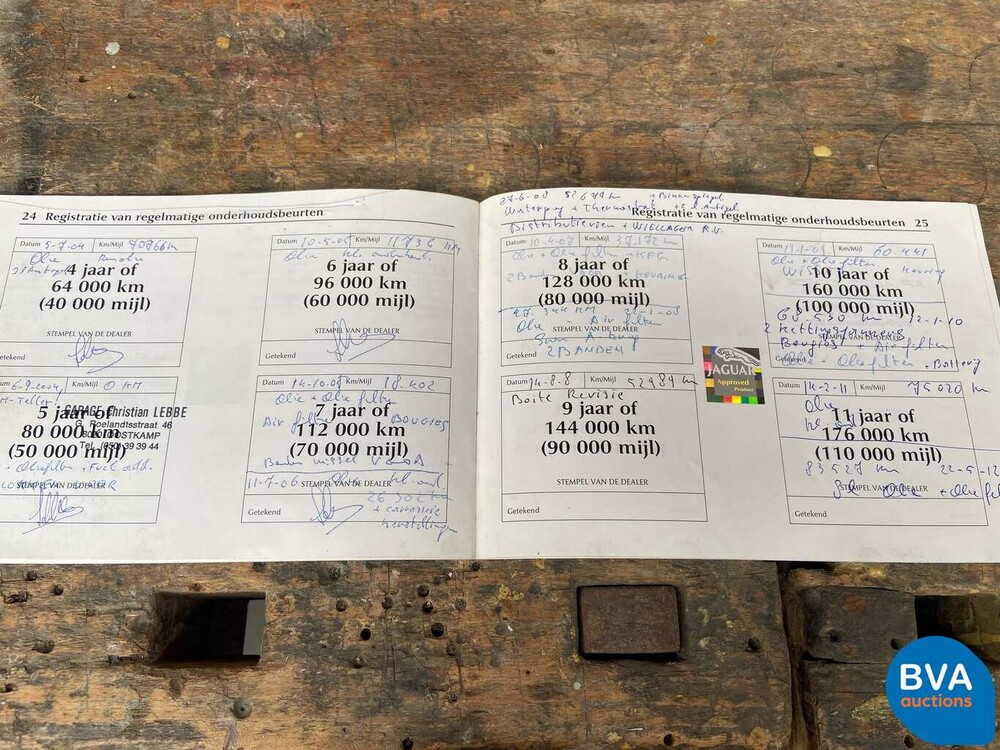 24 Registratie van regelmatige onderhoudsbeurten
Datum 5-7-04 Km/Mijl
Olie
4 jaar of
64 000 km
(40 000 mijl)
STEMPEL VAN DE DEALER
Getekend
Datum 10-5-05 Km/Mijl 11736 KM
Olie
6 jaar of
96 000 km
(60 000 mijl)
STEMPEL VAN DE DEALER
Getekend
6-9-2004 Km/Mijl 0 KM
M-Teller
5 jaar of
80 000 km
(50 000 mijl)
GARAGE Christian LEBBE
G. Roelandtsstraat 46
8020 OOSTKAMP
Tel. (050) 39 39 44
+ Oliefilter + Fuel
STEMPEL VAN DE DEALER
Datum 14-10-05 Km/Mijl 18.402
Olie + Olie filter
Air filter BOUGIES
7 jaar of
112 000 km
(70 000 mijl)
11-7-06 Olie kl. ond.
STEMPEL VAN DE DEALER
26302 km
+ carrosserie
herstellingen
Getekend
27-6-08 52.679 km + Binnenspiegel
Waterpomp + Thermostaat
Distributieriem + WIELLAGER R.V.
Registratie van regelmatige onderhoudsbeurten 25
Datum 10-4-07 Km/Mijl 37.172 km
Olie + Olie filter
2 Banden + KEURING
8 jaar of
128 000 km
(80 000 mijl)
47.344 KM 22-1-08
Olie + Air filter
STEMPEL VAN DE DEALER
2 BANDEN
Getekend
Datum Km/Mijl 60.441
Olie + Olie filter
Keuring
10 jaar of
160 000 km
(100 000 mijl)
km 12-1-10
2 kettingspanners
Bougies + Air filter
STEMPEL VAN DE DEALER
Olie + Olie filter + Batterij
Getekend
JAGUAR
Approved
Product
Datum 14-8-8 Km/Mijl 52989 km
Boite Revisie
9 jaar of
144 000 km
(90 000 mijl)
STEMPEL VAN DE DEALER
Getekend
Datum 14-2-11 Km/Mijl 75020 km
Olie
11 jaar of
176 000 km
(110 000 mijl)
83527 km 22-5-12
STEMPEL VAN DE DEALER
Olie + Olie
Getekend
BVA
auctions